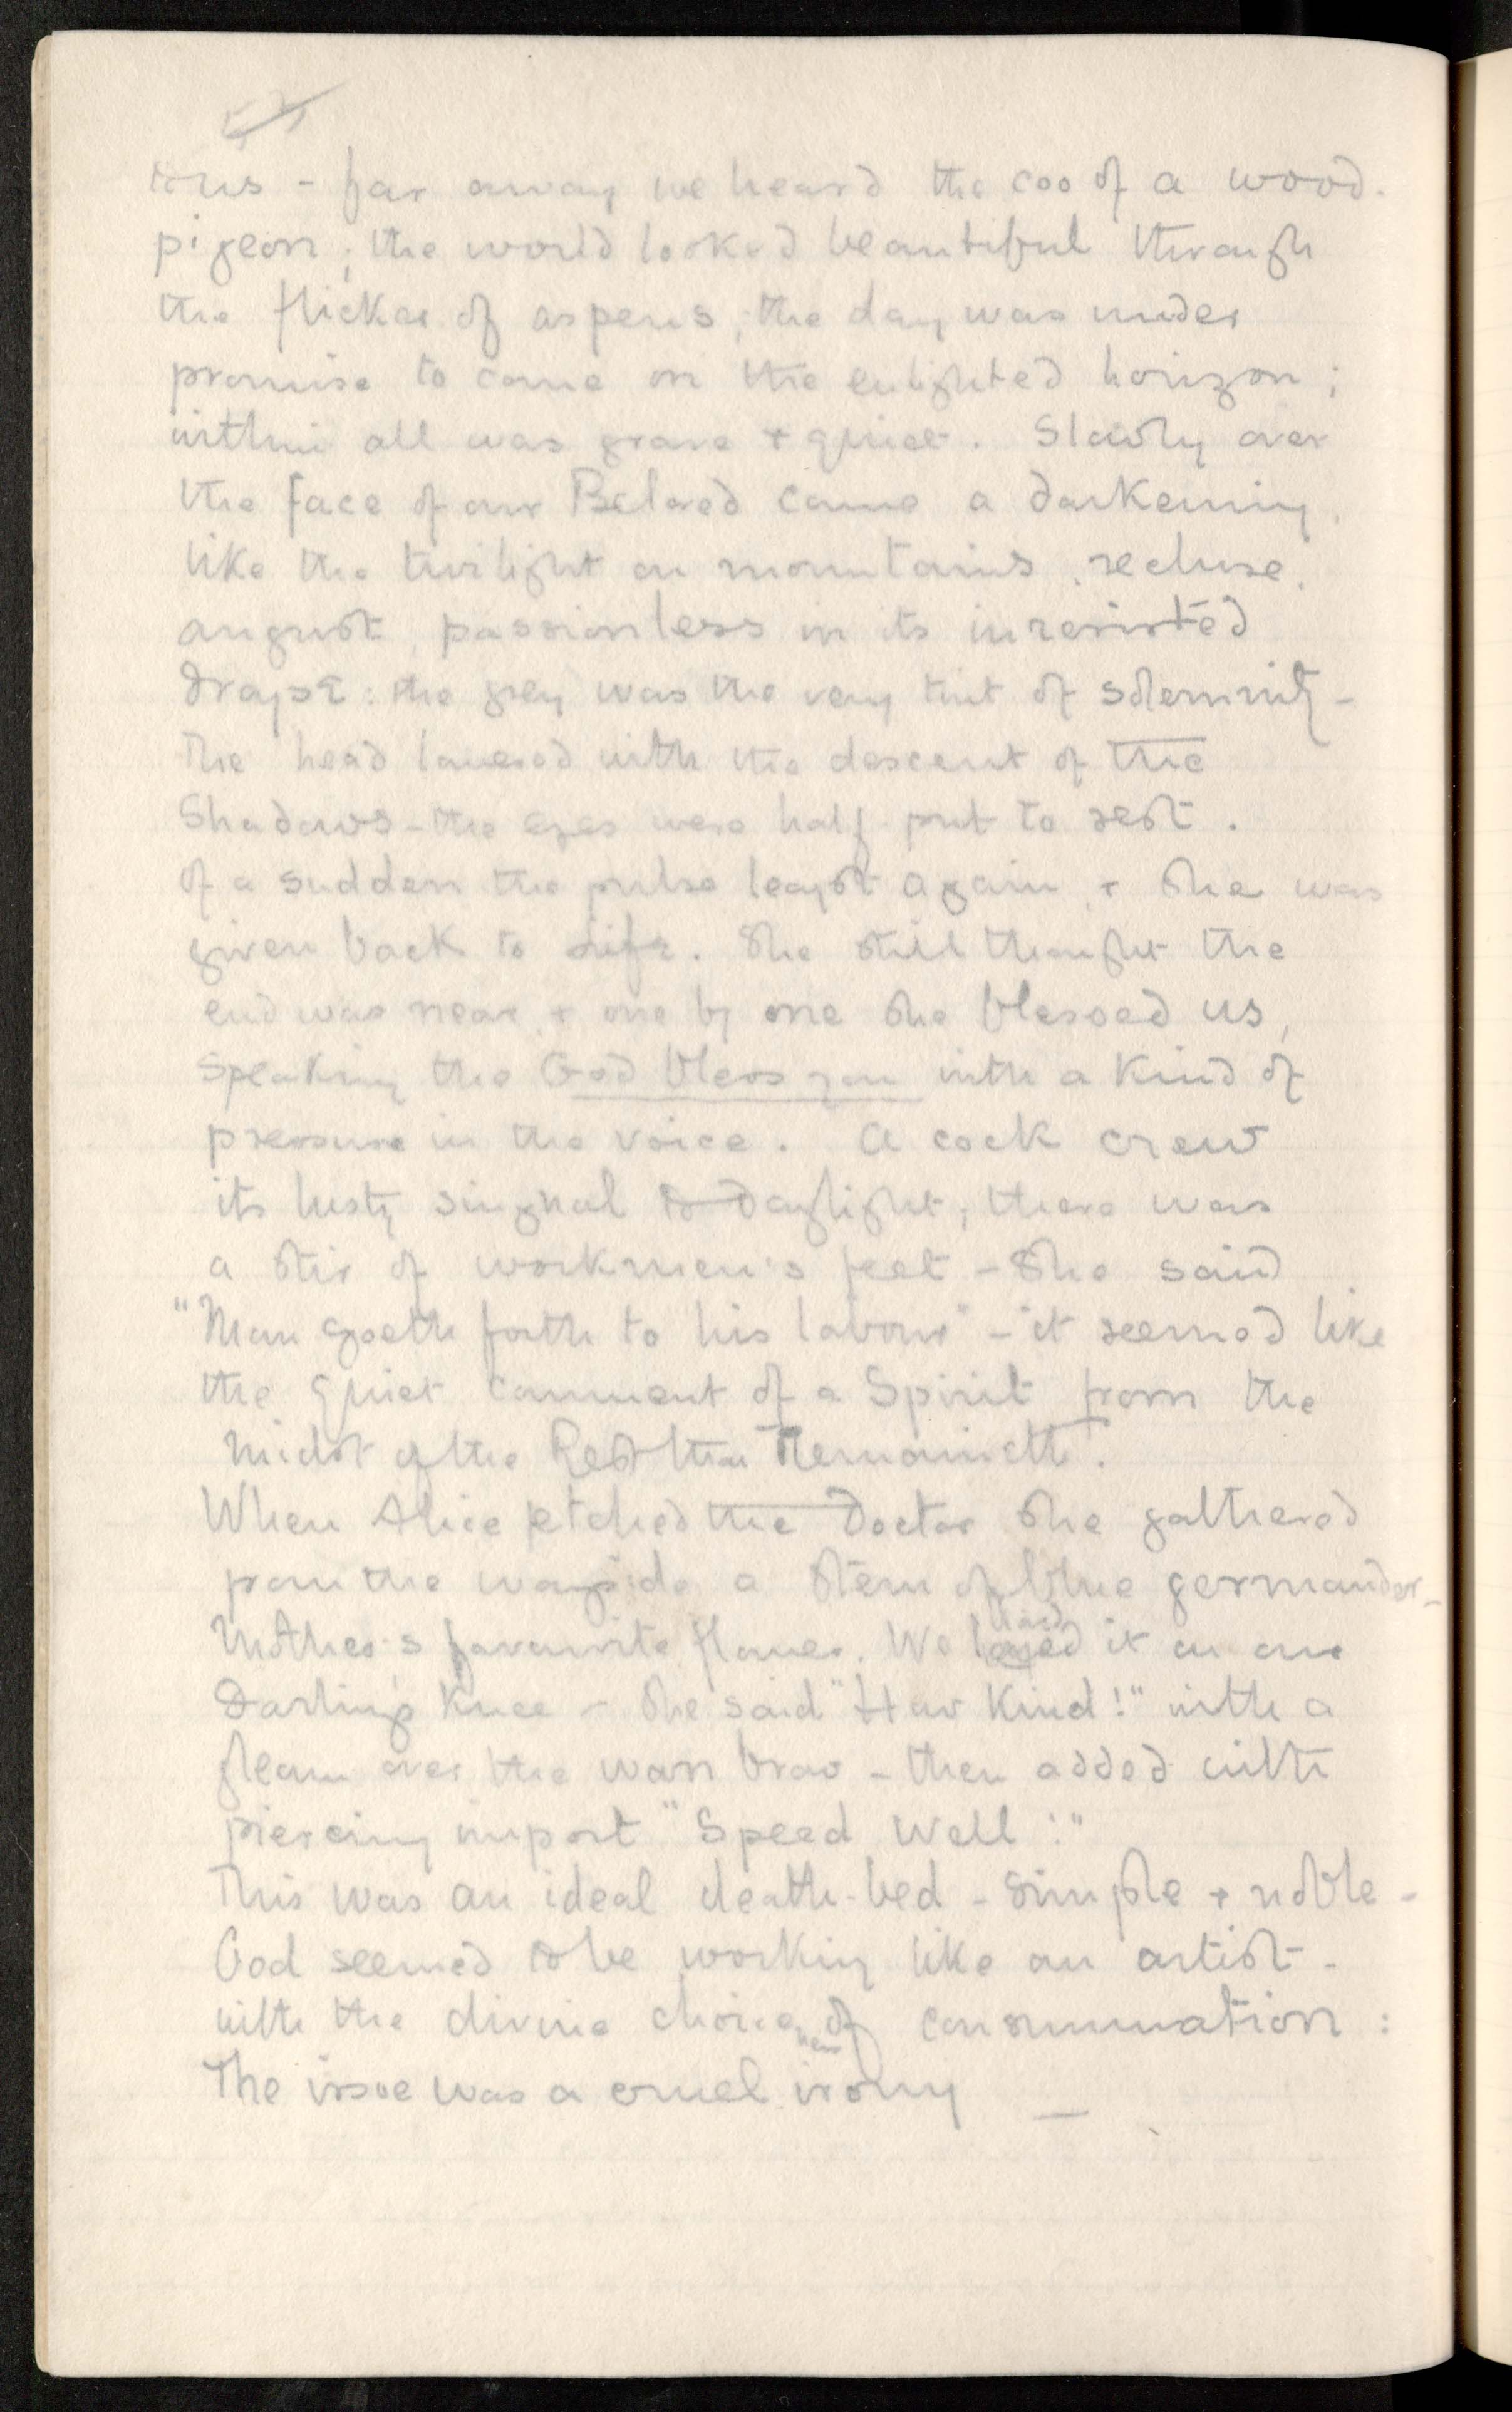 tous - far away we heard the coo of a wood-
pigeon; the world looked beautiful through
the flicker of aspens, the day was under
promise to come on the enlighted horizon;
within all was grave + quiet. Slowly over
the face of our Beloved came a darkening,
like the twilight on mountains, recluse,
august, passionless in its inresisted
drapé: the grey was the very tint of solemnity -
The head lowered with the descent of the
Shadows - the eyes were half put to rest.
Of a sudden the pulse leapst again, + she was
given back to Life. She still thought the
end was near, + one by one she blessed us,
speaking the God bless you with a kind of
pressure in the voice. A cock crew
its lusty singnal to daylight; there was
a stir of workmen's feet - She said
"Man goeth forth to his labour" - it seemed like
the quiet comment of a Spirit from the
midst of the Rest that Remaineth.
When Alice fetched the Doctor she gathered
from the wayside a stem of blue germander -
Mother's favourite flower. We layed laid it on our
Darling's knee - She said "How Kind!" with a
gleam over the wan brow - then added with
piercing import "Speed Well!"
This was an ideal death-bed - simple + noble -
God seemed to be working like an artist -
with the divine choice of consummation:
The issue was a cruel irony —